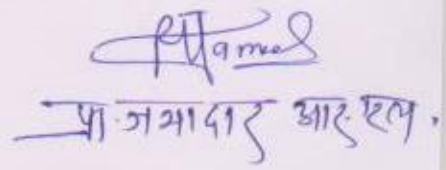 प्रा. जमादार आर. एल.